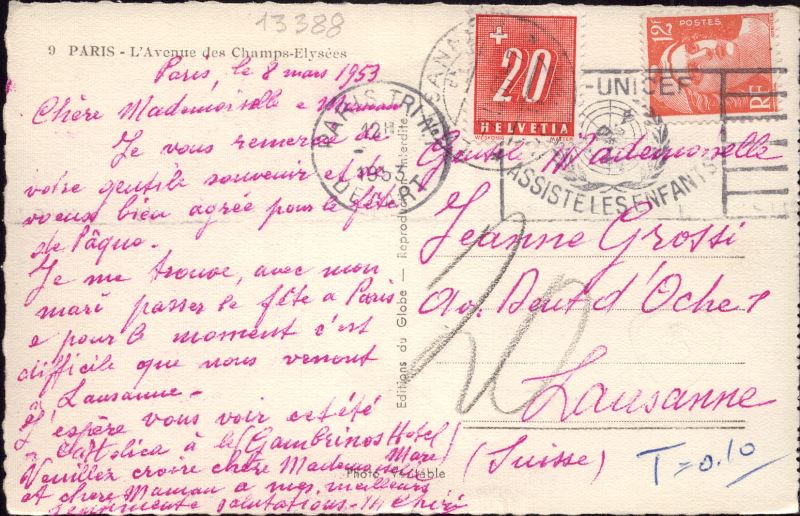 13388
9 PARIS - L'Avenue des Champs-Elysées
Paris, le 8 mars 1953
Chère Mademoiselle e Maman
Je vous remercie de
votre gentile souvenir et de
voeux bien agrée pour le fête
de Pâque.
Je me trouve, avec mon
mari passer le fête à Paris
e pour le moment c'est
difficile que nous venont
a Lausanne -
J'espère vous voir cet été
a Cattolica à le (Gambrinos Hotel
Mare)
Veuillez croire chère Mademoiselle
et chère Maman a mes meilleurs
salutations.
Editions du Globe - Reproduction Interdite
Photo Véritable
PARIS TRI No
12H
1953
DEPART
LAUSANNE
+
20
HELVETIA
12F
POSTES
RF
-UNICEF
ASSISTE LES ENFANTS
Gentile Mademoiselle
Jeanne Grossi
Av. Dent d'Oche 1
Lausanne
(Suisse)
20
T=0.10